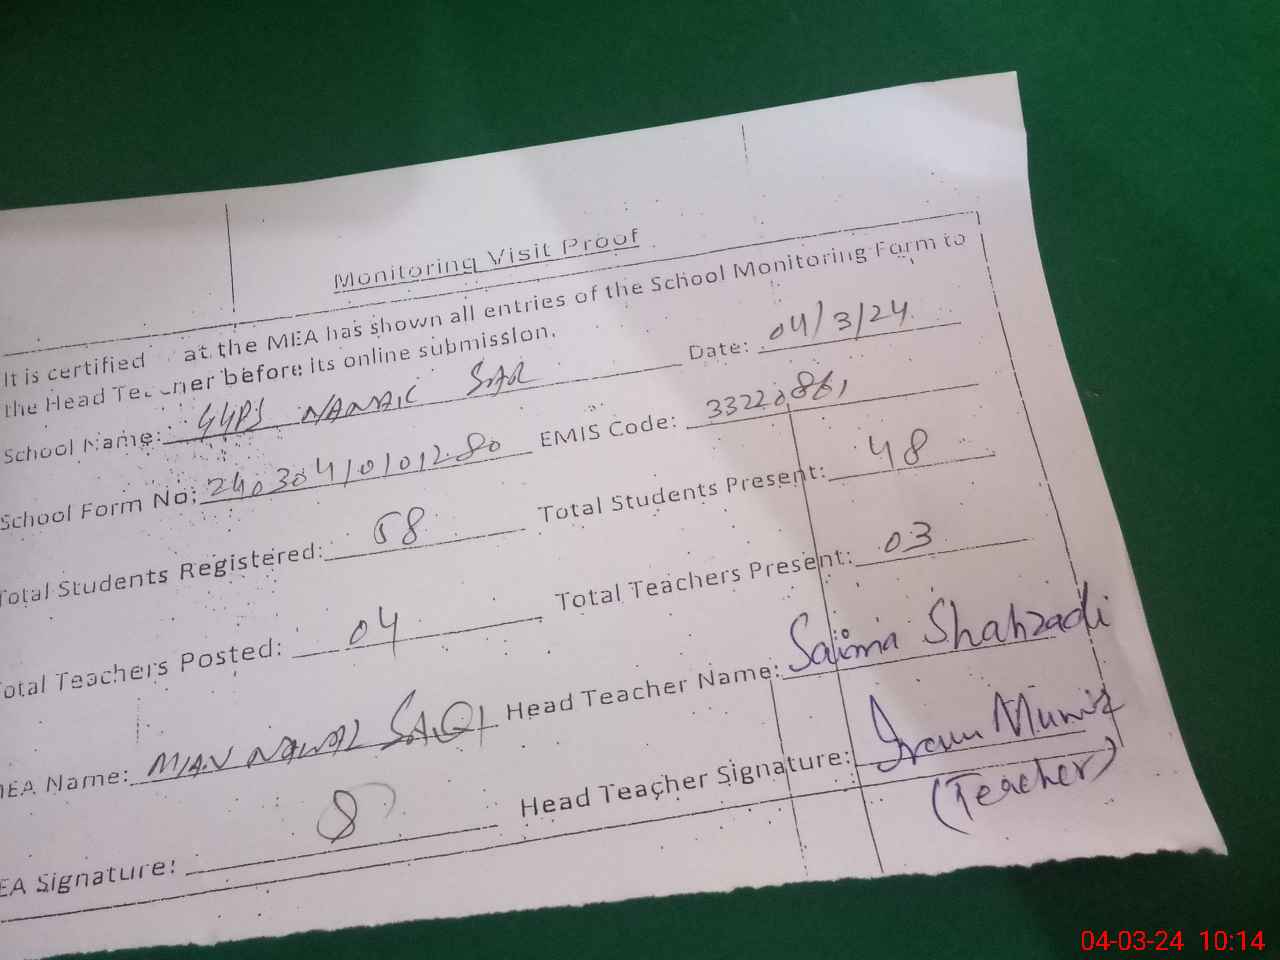 Monitoring Visit Proof
It is certified at the MEA has shown all entries of the School Monitoring Form to
the Head Teacher before its online submission.
Date: 04/3/24
School Name: GGPS NANAK SAR
EMIS Code: 33220861
School Form No: 24030410101280
Total Students Registered: 58
Total Students Present: 48
Total Teachers Posted: 04
Total Teachers Present: 03
MEA Name: MIAN NAWAZ SAQI
Head Teacher Name: Saima Shahzadi
EA Signature:
Head Teacher Signature: Iram Munir
(Teacher)
04-03-24 10:14